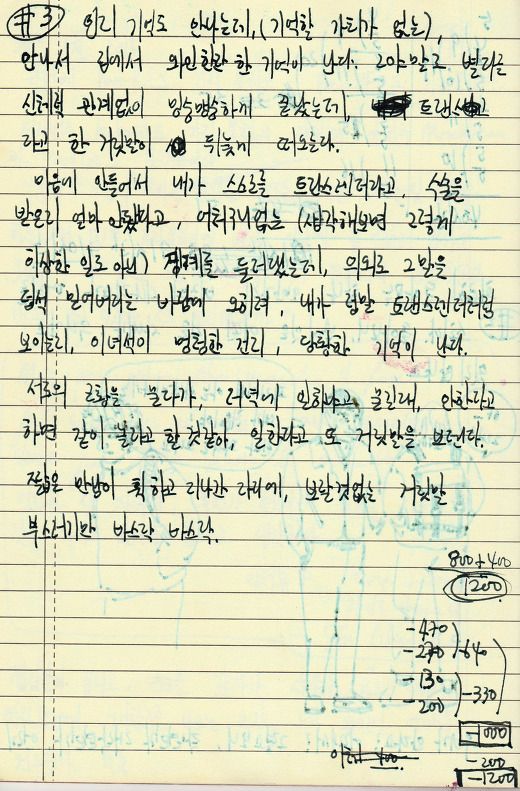 #3 원리 기억도 안나는데,(기억할 가치가 없는),
만나서 집에서 와인한잔 한 기억이 난다. 그야말로 별다른
신체적 관계없이 밍숭맹숭하게 끝났는데, 트랜스
라고 한 거짓말이 뒤늦게 떠오른다.
마음에 안들어서 내가 스스로를 트랜스젠더라고, 수술을
받은지 얼마 안됐다고, 어처구니없는 (생각해보면 그렇게
이상한 일도 아닌) 핑계를 둘러댔는데, 의외로 그말을
덥석 믿어버리는 바람에 오히려, 내가 정말 트랜스젠더처럼
보이는지, 이녀석이 멍청한 건지, 당황한 기억이 난다.
서로의 근황을 묻다가, 저녁에 일하냐고 물길래, 안한다고
하면 같이 놀자고 할 것같아, 일한다고 또 거짓말을 보탠다.
짧은 만남이 휙하고 지나간 자리에, 보잘것없는 거짓말
부스러기만 바스락 바스락.
800+400
1200
-470
-270 -640
-130
-200 -330
-1000
-200
-1200
400